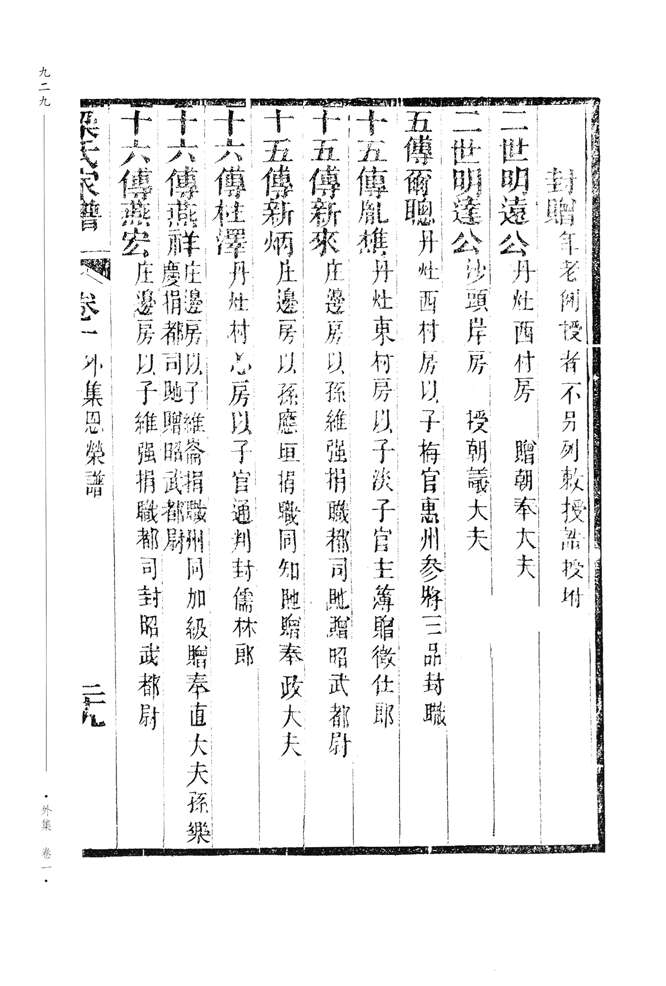 封贈年老附授者不另列敕授誥授坿
二世明遠公丹灶西村房 贈朝奉大夫
二世明達公沙頭岸房 授朝議大夫
五傳爾聰丹灶西村房以子梅官惠州參將三品封職
十五傳胤樵丹灶東柯房以子淡子官主簿贈徵仕郎
十五傳新來庄邊房以孫維强捐職都司貤贈昭武都尉
十五傳新炳庄邊房以孫應垣捐職同知貤贈奉政大夫
十六傳柱澤丹灶村心房以子官通判封儒林郎
十六傳燕祥庄邊房以子維崙捐職州同加級贈奉直大夫孫樂
慶捐都司貤贈昭武都尉
十六傳燕宏庄邊房以子維强捐職都司封昭武都尉
梁氏家譜 卷一 外集恩榮譜 二十九
九二九
·外集 卷一·